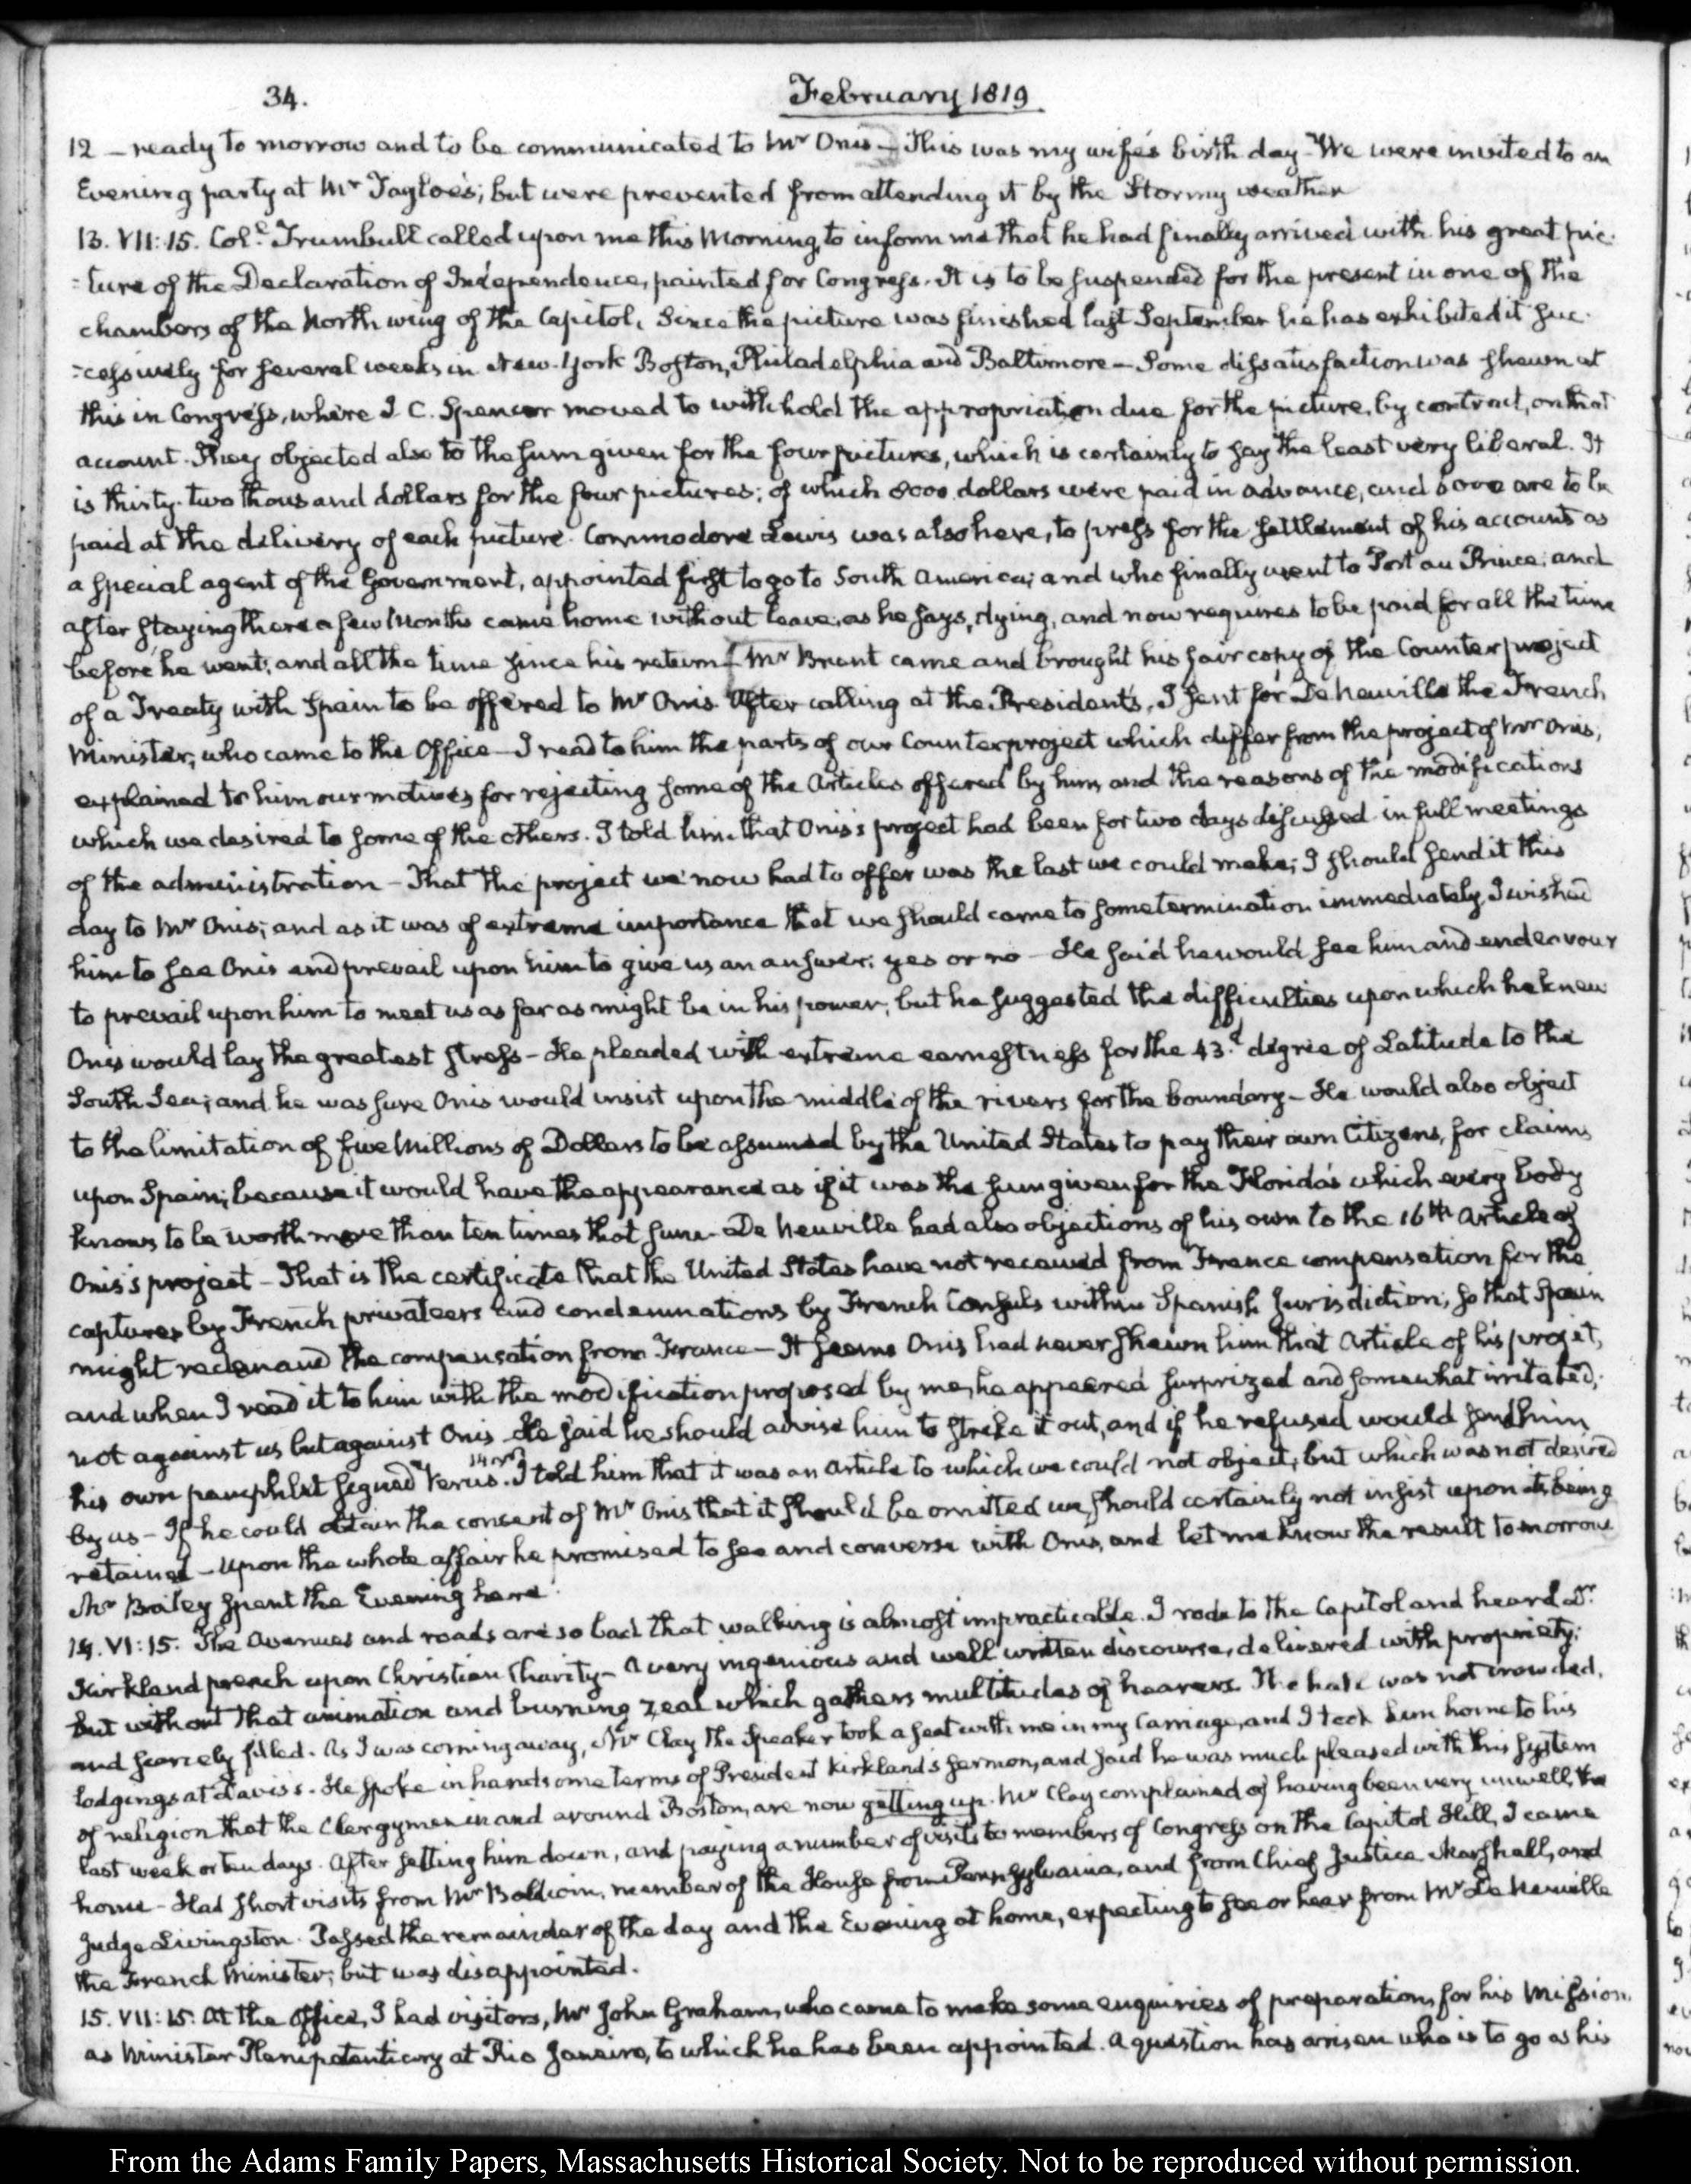 34.
February 1819
12 – ready to morrow and to be communicated to Mr Onis – This was my wife's birth day – We were invited to an
Evening party at Mr Tayloe's; but were prevented from attending it by the Stormy weather
13. VII:15. Col.l Trumbull called upon me this Morning, to inform me that he had finally arrived with his great pic-
=ture of the Declaration of Independence, painted for Congress. It is to be suspended for the present in one of the
chambers of the North wing of the Capitol. Since the picture was finished last September he has exhibited it suc-
=cessively for several weeks in New-York Boston, Philadelphia and Baltimore – Some dissatisfaction was shewn at
this in Congress, where J. C. Spencer moved to withhold the appropriation due for the picture, by contract, on that
account. They objected also to the sum given for the four pictures, which is certainly to say the least very liberal. It
is thirty-two thousand dollars for the four pictures; of which 8000 dollars were paid in advance, and 6000 are to be
paid at the delivery of each picture. Commodore Lewis was also here, to press for the settlement of his accounts as
a special agent of the Government, appointed first to go to South America; and who finally went to Port au Prince; and
after staying there a few Months came home without leave, as he says, dying, and now requires to be paid for all the time
before he went; and all the time since his return [Mr Brent came and brought his fair copy of the Counter project
of a Treaty with Spain to be offered to Mr Onis. After calling at the President's, I sent for De Neuville the French
Minister, who came to the Office – I read to him the parts of our Counterproject which differ from the project of Mr Onis;
explained to him our motives for rejecting some of the Articles offered by him, and the reasons of the modifications
which we desired to some of the others. I told him that Onis's project had been for two days discussed in full meetings
of the administration – That the project we now had to offer was the last we could make; I should send it this
day to Mr Onis; and as it was of extreme importance that we should come to some termination immediately I wished
him to see Onis and prevail upon him to give us an answer; yes or no – He said he would see him and endeavour
to prevail upon him to meet us as far as might be in his power; but he suggested the difficulties upon which he knew
Onis would lay the greatest stress – He pleaded with extreme earnestness for the 43.d degree of Latitude to the
South Sea; and he was sure Onis would insist upon the middle of the rivers for the boundary – He would also object
to the limitation of five Millions of Dollars to be assumed by the United States to pay their own Citizens, for claims
upon Spain; because it would have the appearance as if it was the sum given for the Florida's which every body
knows to be worth more than ten times that sum – De Neuville had also objections of his own to the 16th Article of
Onis's project – That is the certificate that the United States have not received from France compensation for the
captures by French privateers and condemnations by French Consuls within Spanish Jurisdiction; so that Spain
might redemand the compensation from France – It seems Onis had never shewn him that Article of his projet,
and when I read it to him with the modification proposed by me, he appeared surprized and somewhat irritated;
not against us but against Onis. He said he should advise him to strike it out, and if he refused would send him
his own pamphlet signed Verus. I told him that it was an Article to which we could not object, but which was not desired
by us – If he could obtain the consent of Mr Onis that it should be omitted we should certainly not insist upon its being
retained – Upon the whole affair he promised to see and converse with Onis, and let me know the result tomorrow
Mr Bailey spent the Evening here.
14. VI:15. The Avenues and roads are so bad that walking is almost impracticable. I rode to the Capitol and heard Dr
Kirkland preach upon Christian Charity – A very ingenious and well written discourse, delivered with propriety;
but without that animation and burning zeal which gathers multitudes of hearers. The hall was not crowded,
and scarcely filled. As I was coming away, Mr Clay the Speaker took a seat with me in my Carriage, and I took him home to his
lodgings at Davis's. He spoke in handsome terms of President Kirkland's sermon, and said he was much pleased with this system
of religion that the Clergymen in and around Boston, are now getting up. Mr Clay complained of having been very unwell, the
last week or ten days. After setting him down, and paying a number of visits to members of Congress on the Capitol Hill, I came
home – Had short visits from Mr Baldwin, member of the House from Pennsylvania, and from Chief Justice Marshall, and
Judge Livingston. Passed the remainder of the day and the Evening at home, expecting to see or hear from Mr De Neuville
the French Minister; but was disappointed.
15. VII:15. At the Office, I had visitors, Mr John Graham, who came to make some enquiries of preparation, for his Mission,
as Minister Plenipotentiary at Rio Janeiro, to which he has been appointed. A question has arisen who is to go as his
From the Adams Family Papers, Massachusetts Historical Society. Not to be reproduced without permission.